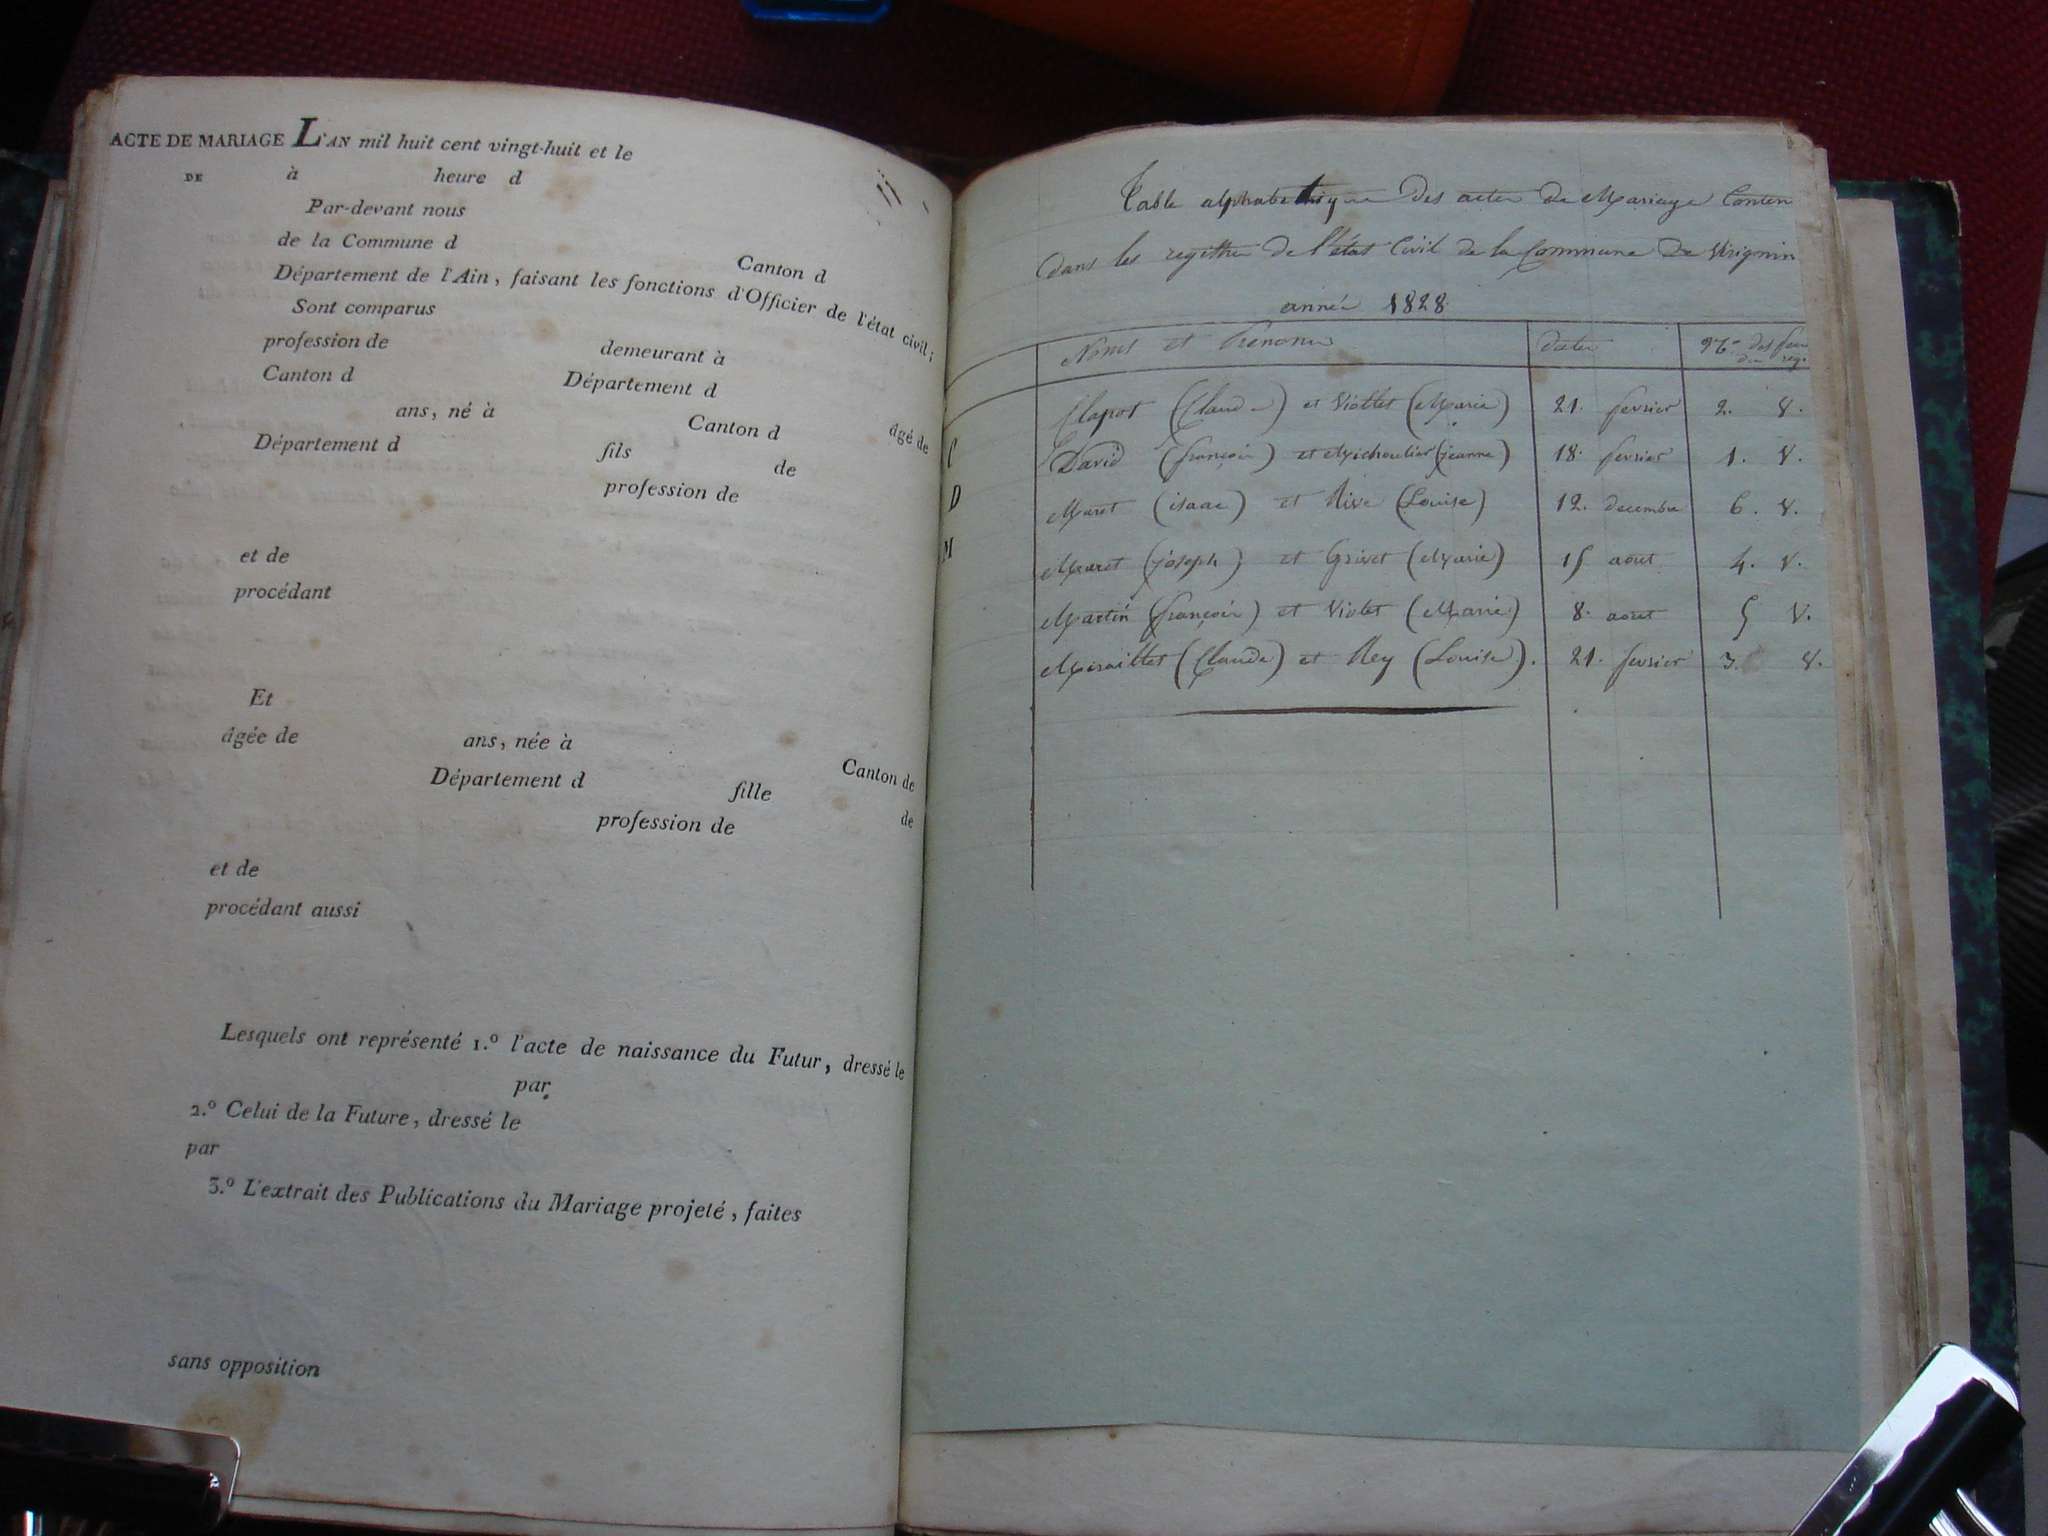 ACTE DE MARIAGE L'AN mil huit cent vingt-huit et le
DE à heure d
Par-devant nous
de la Commune d Canton d
Département de l'Ain, faisant les fonctions d'Officier de l'état civil;
Sont comparus
profession de demeurant à
Canton d Département d
âgé de
ans, né à Canton d
Département d fils de
profession de
et de
procédant
Et
âgée de ans, née à Canton de
Département d fille de
profession de
et de
procédant aussi
Lesquels ont représenté 1.º l'acte de naissance du Futur, dressé le
par
2.º Celui de la Future, dressé le
par
3.º L'extrait des Publications du Mariage projeté, faites
sans opposition
Table alphabetique des actes de Mariage Conten
dans les registre de l'état Civil de la Commune de Virignin
année 1828
Noms et Prénoms dates Nº des
C Clapot (Claude) et Viollet (Marie) 21. fevrier 2. 8.
D David (françois) et Michoulier (jeanne) 18. fevrier 1. 8.
M Maret (isaac) et Rive (Louise) 12. decembre 6. 8.
Maret (joseph) et Grivet (Marie) 15 aout 4. 8.
Martin (françois) et Violet (Marie) 8. aout 5 8.
Miraillet (Claude) et Rey (Louise). 21. fevrier 3. 8.